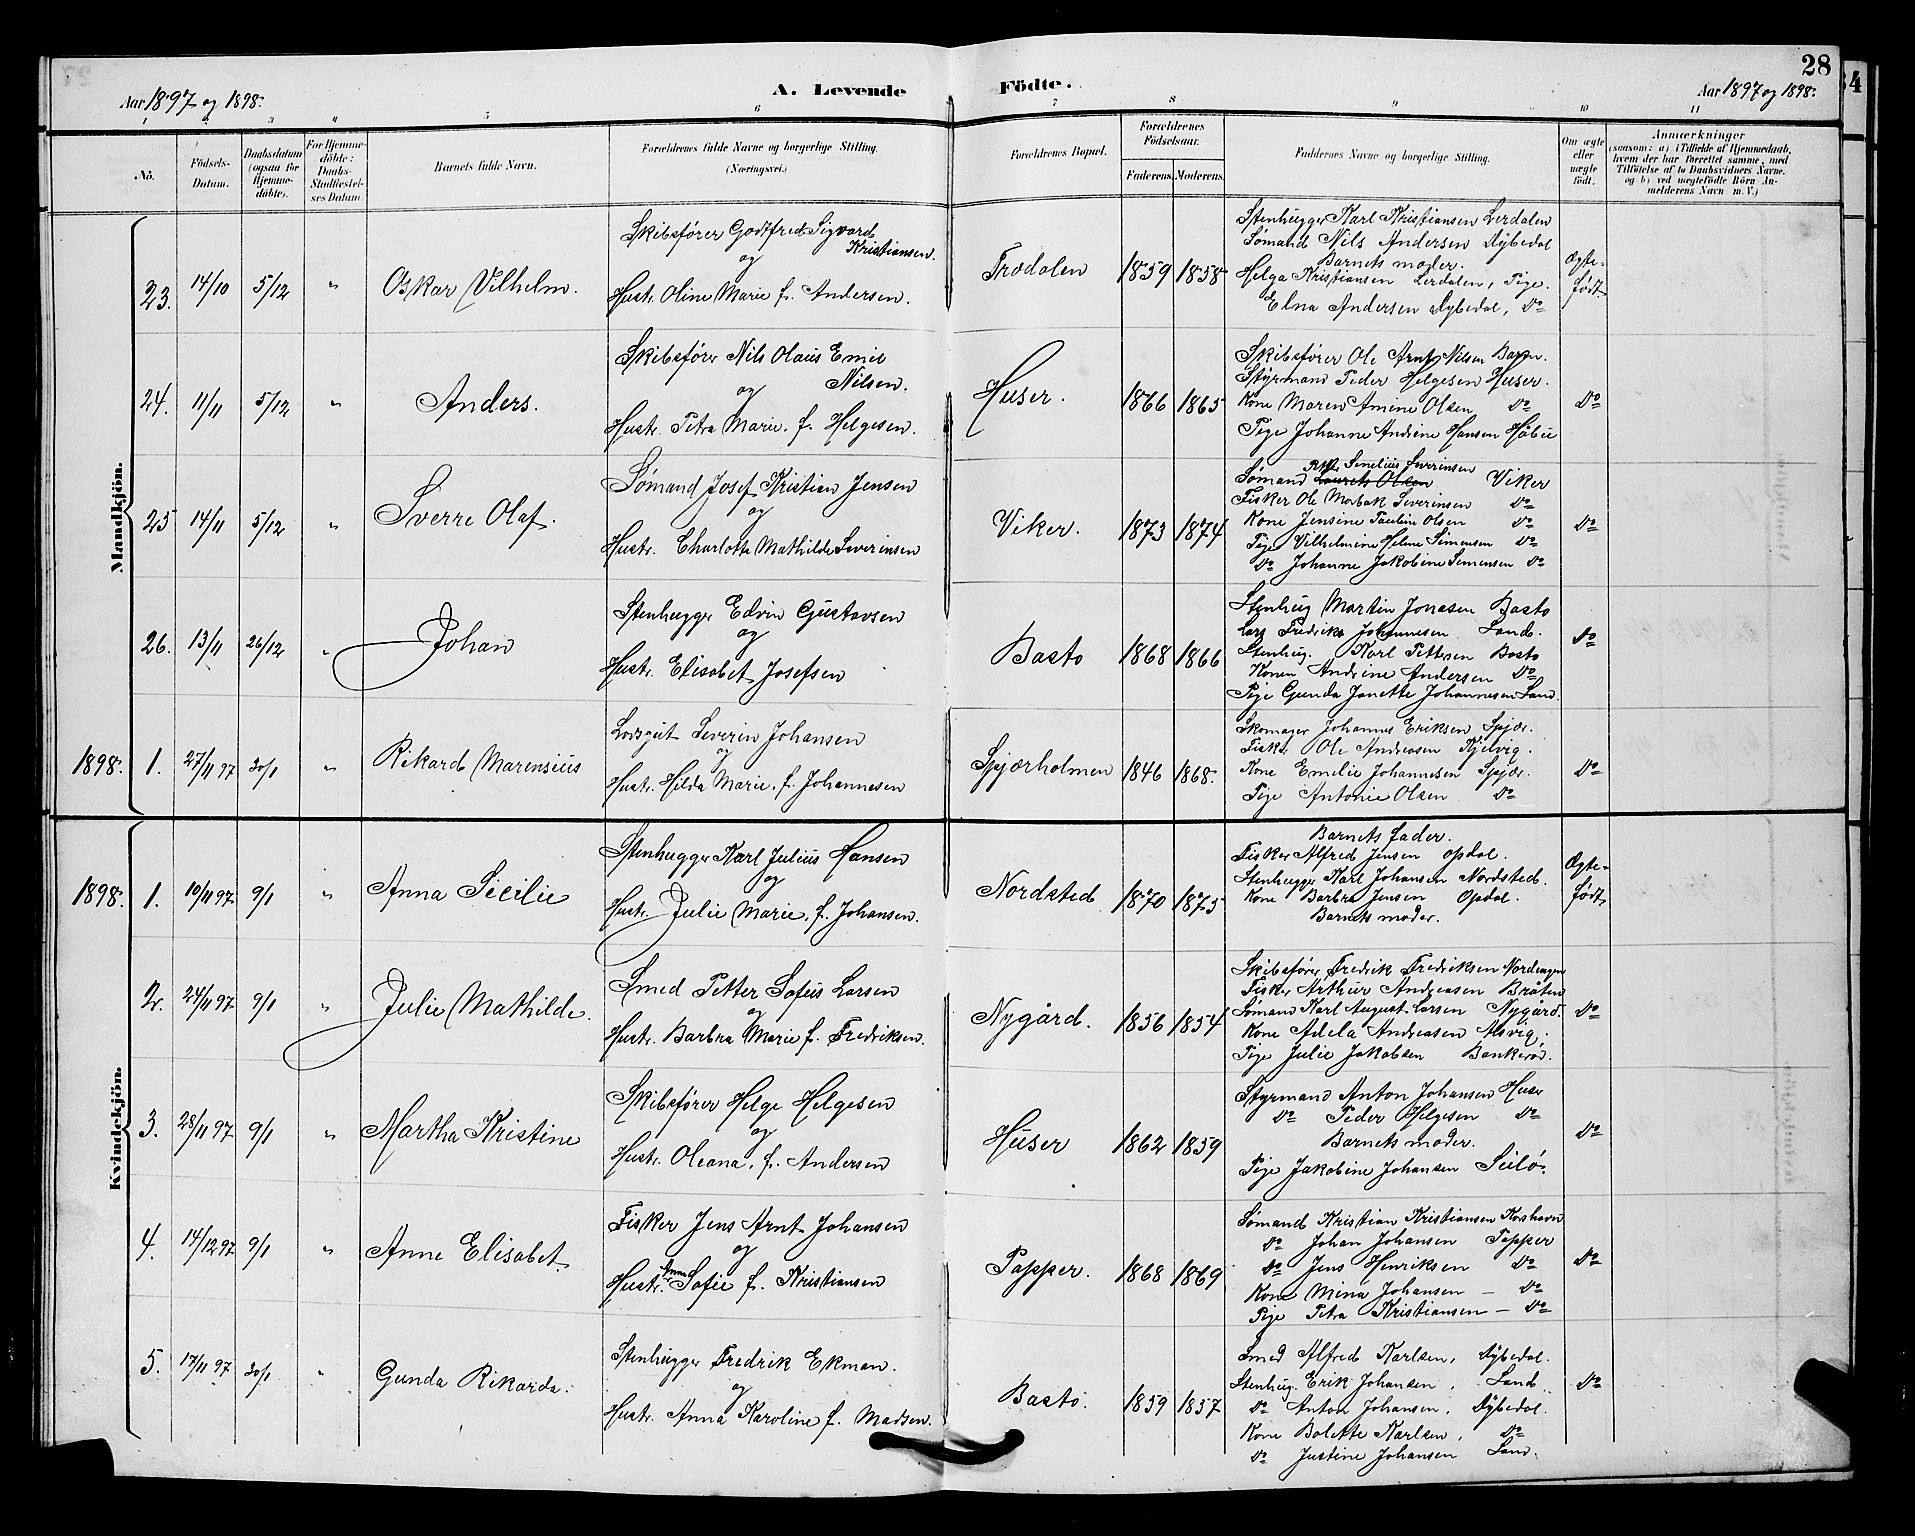 28
34
Aar 1897 og 1898.
A. Levende Födte.
Aar 1897 og 1898.
1 2 3 4 5 6 7 8 9 10 11
No.
Födsels-Datum.
Daabsdatum (ogsaa for Hjemme-döbte).
For Hjemme-döbte: Daabs-Stadfæstel-ses Datum.
Barnets fulde Navn.
Forældrenes fulde Navne og borgerlige Stilling. (Næringsvei.)
Forældrenes Bopæl.
Forældrenes Födselsaar.
Faderens. Moderens.
Faddernes Navne og borgerlige Stilling.
Om ægte eller uægte födt.
Anmærkninger
(saasom: a) i Tilfælde af Hjemmedaab, hvem der har forrettet samme, med Tilföielse af to Daabsvidners Navne, og b) ved uægtefödte Börn An-melderens Navn m. V.)
Mandkjön.
23. 14/10 5/12 " Oskar Vilhelm.
Skibsfører Godtfred Sigvard Kristiansen.
og
Hustr. Oline Marie f. Andersen.
Trædalen 1859 1858
Stenhugger Karl Kristiansen Lerdalen
Sømand Nils Andersen Dybedal
Barnets moder.
Helga Kristiansen Lerdalen, Pige.
Elna Andersen Dybedal, Do
Ægte-født
24. 11/11 5/12 " Anders.
Skibsfører Nils Olaus Emil Nilsen.
og
Hustr. Petra Marie. f. Helgesen.
Huser. 1866 1865
Skibsfører Ole Arnt Nilsen
Styrmand Peder Helgesen Huser.
Kone Maren Amine Olsen Do
Pige Johanne Andrine Hansen
Do
25 14/11 5/12 " Sverre Olaf.
Sømand Josef Kristian Jensen
og
Hustr. Charlotte Mathilde Severinsen
Viker. 1873 1874
Simelius Severinsen
Sømand Laurits Olsen Viker
Fisker Ole Morbak Severinsen Do
Kone Jensine Pauline Olsen Do
Pige Vilhelmine Helene Simensen Do
Do Johanne Jakobine Simensen Do
Do
26. 13/11 26/12 " Johan
Stenhugger Edvin Gustavsen
og
Hustr. Elisabet Josefsen
Basto 1868 1866
Stenhug Martin Jonasen Basto
Fredrik Johannesen Sand.
Stenhug. Karl Pettersen Basto
Konen Andrine Andersen Do
Pige Gunda Janette Johannesen Sand.
Do
1898. 1. 27/11 97 30/1 " Rikard Marensius
Lodsgut Severin Johansen
og
Hustr. Hilda Marie. f. Johannesen
Spjærholmen 1846 1868.
Skomager Johannes Eriksen Spjær.
Fisker Ole Andreasen Kjelvig.
Kone Emelie Johannesen Spjær.
Pige Antonie Olsen Do
Do
Kvindekjön.
1898. 1. 10/11 97 9/1 " Anna Sicilie
Stenhugger Karl Julius Hansen
og
Hustr. Julie Marie, f. Johansen.
Nordsted 1870 1875
Barnets fader.
Fisker Alfred Jensen Opdal.
Stenhugger Karl Johansen Nordsted.
Kone Barbra Jensen Opdal.
Barnets moder.
Ægte-født
2. 24/11 97 9/1 " Julie Mathilde.
Smed Petter Sofus Larsen
og
Hustr. Barbra Marie f. Fredriksen.
Nygård. 1856 1854
Skibsfører Fredrik Fredriksen Nordengen
Fisker Arthur Andreasen Bråten
Sømand Karl August Larsen Nygård.
Kone Adela Andreasen Utvig.
Pige Julie Jakobsen Bankerød.
Do
3. 28/11 97 9/1 " Martha Kristine
Skibsfører Helge Helgesen
og
Hustr. Oleana. f. Andersen
Huser 1862 1859
Styrmand Anton Johansen Huser
Do Peder Helgesen Do
Barnets moder.
Pige Jakobine Johansen
Do
4. 14/12 97 9/1 " Anne Elisabet.
Fisker Jens Arnt Johansen
og
Hustr. Anne Sofie f. Kristiansen
Papper. 1868 1869
Sømand Kristian Kristiansen Korshavn
Do Johan Johansen Papper
Do Jens Henriksen Do
Kone Mina Johansen — Do
Pige Petra Kristiansen — Do
Do
5. 17/11 97 30/1 " Gunda Rikarda.
Stenhugger Fredrik Ekman.
og
Hustr. Anna Karoline f. Madsen.
Basto. 1859 1857
Smed Alfred Karlsen, Dybedal.
Stenhug. Erik Johansen, Sand
Do Anton Johansen, Dybedal.
Kone Bolette Karlsen, Do
Do Justine Johansen Sand.
Do